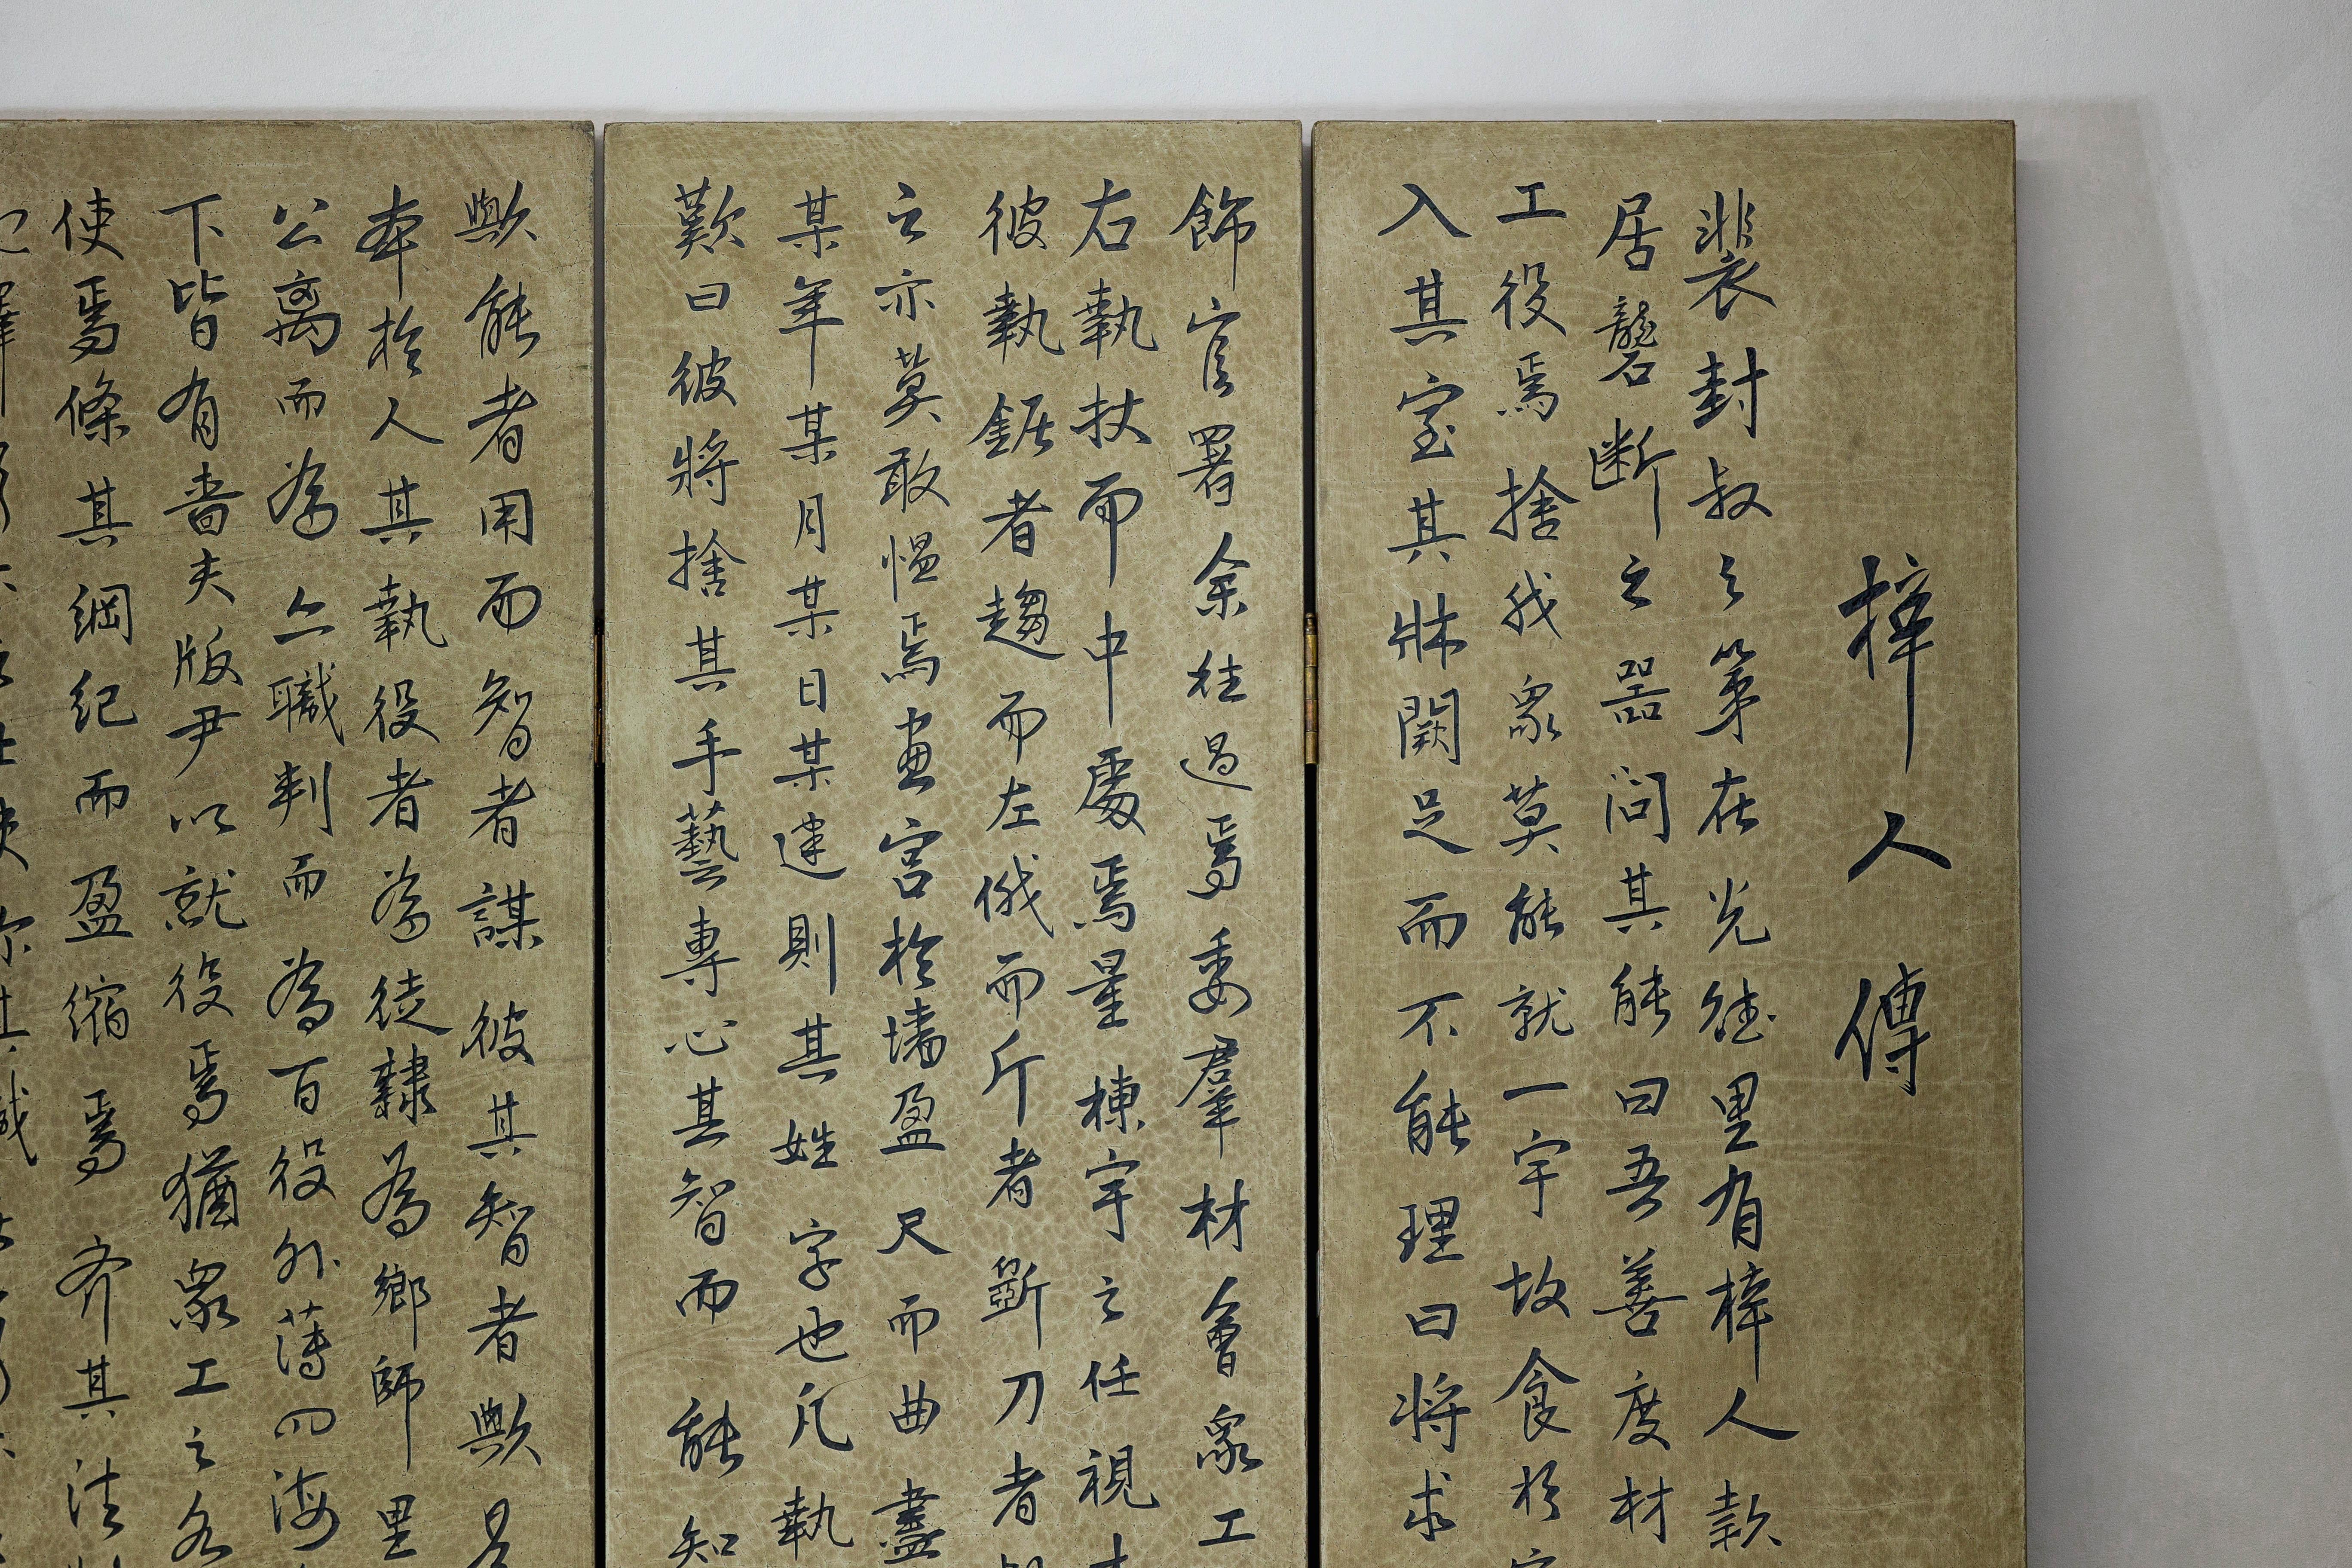 梓人傳
裴封叔之第在光德里有梓人款
居礱断之器問其能曰吾善度材
工役焉捨我眾莫能就一宇故食於
入其室其牀闕足而不能理曰将求
飾官署余往過焉委羣材會眾工
右執杖而中處焉量棟宇之任視
彼執鋸者趨而左俄而斤者斲刀者
之亦莫敢慍焉畫宮於墙盈尺而曲盡
某年某月某日某建則其姓字也凡執
歎曰彼將捨其手藝專心其智而能知
歟能者用而智者謀彼其智者歟是
本於人其執役者為徒隸為鄉師里
公離而為六職判而為百役外薄四海
下皆有嗇夫版尹以就役焉猶眾工之各
使焉條其綱紀而盈縮焉齊其法